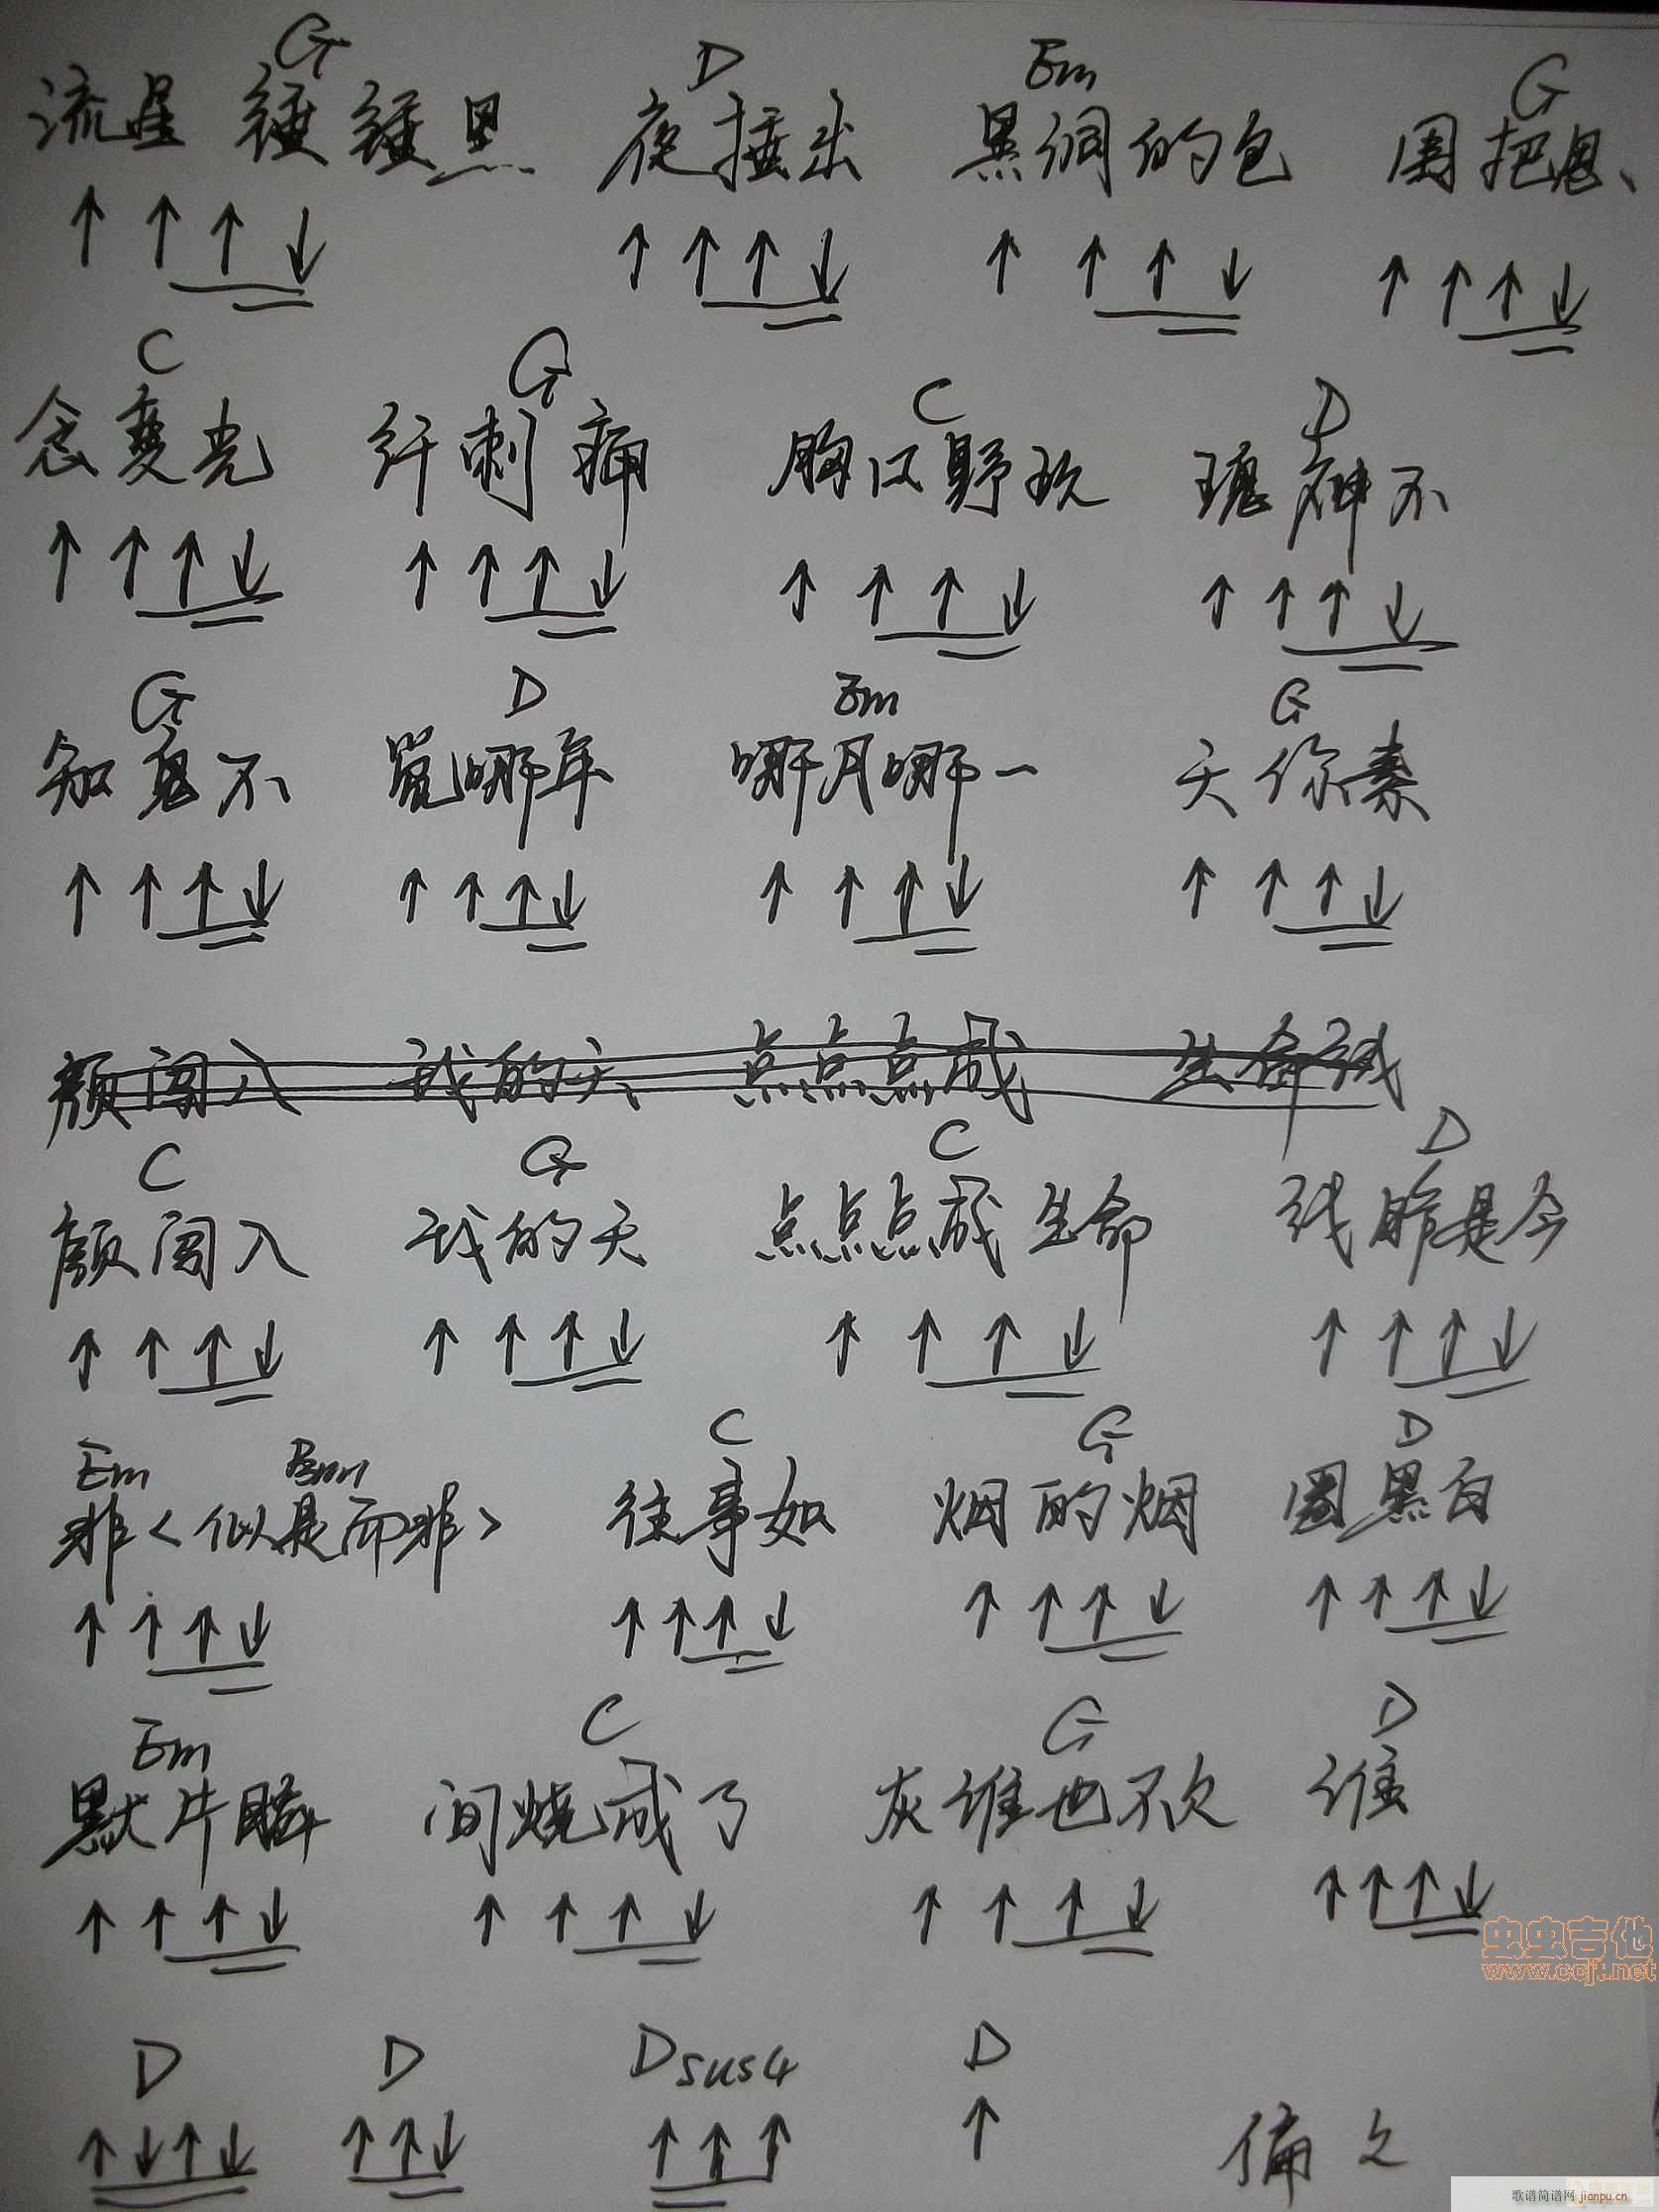 G D Em G
流星 锤锤黑 夜捶出 黑洞的包 围把思、
↑ ↑ ↑ ↓ ↑ ↑ ↑ ↓ ↑ ↑ ↑ ↓ ↑ ↑ ↑ ↓
C G C D
念变光 纤刺痛 胸口野玫 瑰神不
↑ ↑ ↑ ↓ ↑ ↑ ↑ ↓ ↑ ↑ ↑ ↓ ↑ ↑ ↑ ↓
G D Em G
知鬼不 觉哪年 哪月哪一 天你素
↑ ↑ ↑ ↓ ↑ ↑ ↑ ↓ ↑ ↑ ↑ ↓ ↑ ↑ ↑ ↓
颜闯入 我的天 点点点成 生命线
C G C D
颜闯入 我的天 点点点成生命 线昨是今
↑ ↑ ↑ ↓ ↑ ↑ ↑ ↓ ↑ ↑ ↑ ↓ ↑ ↑ ↑ ↓
Em Bm C G D
非<似是而非> 往事如 烟的烟 圈黑白
↑ ↑ ↑ ↓ ↑ ↑ ↑ ↓ ↑ ↑ ↑ ↓ ↑ ↑ ↑ ↓
Em C G D
默片瞬 间烧成了 灰谁也不欠 谁
↑ ↑ ↑ ↓ ↑ ↑ ↑ ↓ ↑ ↑ ↑ ↓ ↑ ↑ ↑ ↓
虫虫吉他
www.ccjt.net
D D Dsus4 D
↑ ↓ ↑ ↓ ↑ ↑ ↓ ↑ ↑ ↑ ↑
偏之
歌谱简谱网 jianpu.cn